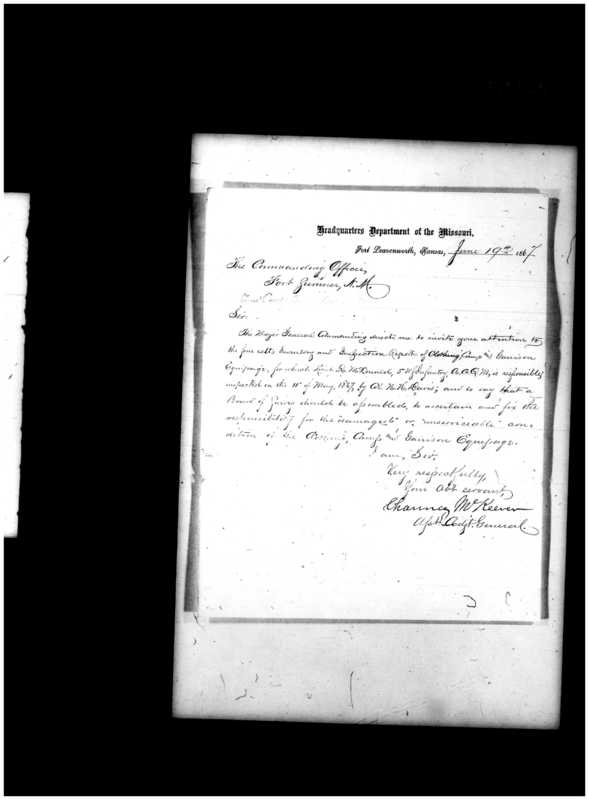 Headquarters Department of the Missouri,
Fort Leavenworth, Kansas, June 19th 1867.
The Commanding Officer,
Fort Sumner, N.M.
Sir.
The Major General Commanding directs me to invite your attention to
the Inventory and Inspection Report of Clothing, Camp and Garrison
Equipage, for which Lieut. McDonald, 5th Infantry A.A.Q.M. is responsible,
inspected on the 11th of May, 1867, by Col. N.H. Davis; and to say that a
Board of should be assembled, to ascertain and fix the
responsibility for the "damaged" or "unserviceable" con-
dition of the Clothing, Camp and Garrison Equipage.
I am, Sir,
Very respectfully,
Your obt servant,
Chauncey McKeever
Asst. Adjt. General.